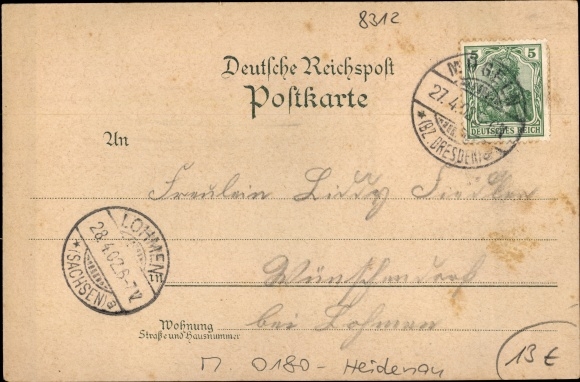 8312
Deutsche Reichspost
Postkarte
5
DEUTSCHES REICH
MÜGELN
27.4.0
*(BZ. DRESDEN)
An
Freulein Liddy
LOHMEN
28.4.02.6-7V
*(SACHSEN)a
Wünschendorf
bei Lohmen
Wohnung
Straße und Hausnummer
13€
0180- Heidenau